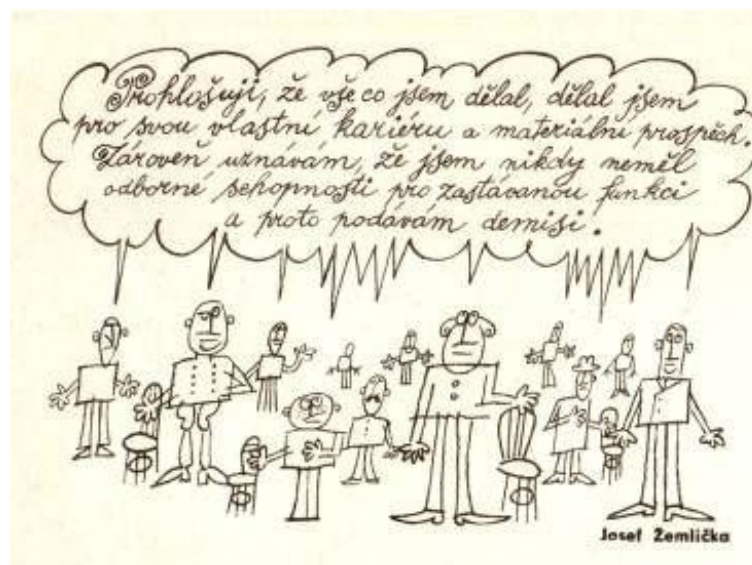 Prohlošuji, že vše co jsem dělal, dělal jsem
pro svou vlastní kariéru a materiální prospěch.
Zároveň uznávám, že jsem nikdy neměl
odborné schopnosti pro zastávanou funkci
a proto podávám demisi.
Josef Žemlička